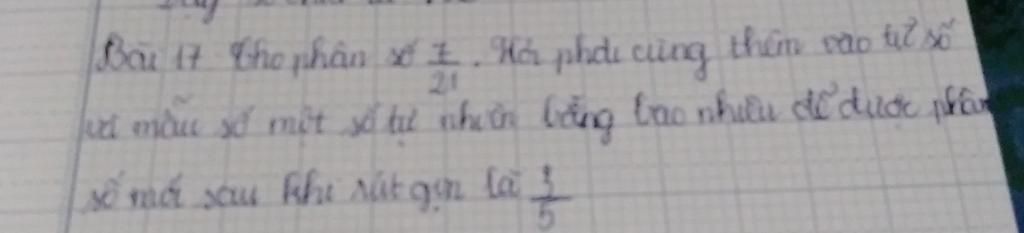 Bài 17 Cho phân số 7/21. Hỏi phải cùng thêm vào tử số
và mẫu số một số tự nhiên bằng bao nhiêu để được phân
số mới sau khi rút gọn là 3/5